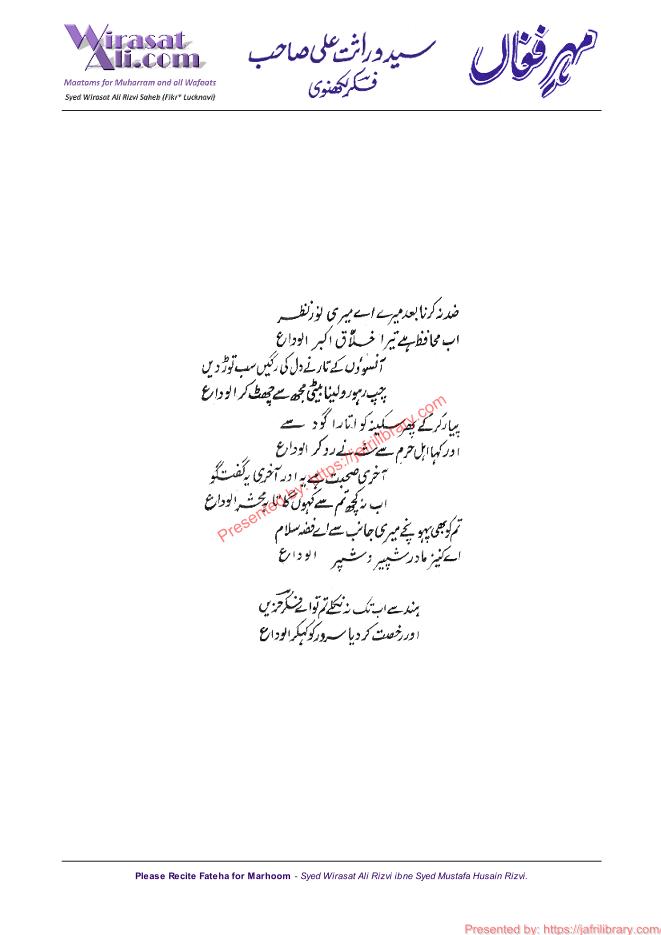 Wirasat
Ali.com
Maatams for Muharram and all Wafaats
Syed Wirasat Ali Rizvi Saheb (Fikr* Lucknavi)
سید وراثت علی صاحب
فکر لکھنوی
مہر فغاں
ضد نہ کرنا بعد میرے اے میری نورِ نظر
اب محافظ ہے تیرا خلّاق اکبر الوداع
آنسوؤں کے تار نے دل کی رگیں سب توڑ دیں
چپ رہو رو لینا بیٹی مجھ سے چھٹ کر الوداع
پیار کر کے پھر سکینہ کو اتارا گود سے
اور کہا اہل حرم سے شہ نے رو کر الوداع
آخری صحبت ہے یہ اور آخری یہ گفتگو
اب نہ کچھ تم سے کہوں گا تا بہ محشر الوداع
تم کو بھی پہونچے میری جانب سے اے فضہ سلام
اے کنیز مادر شبیر و شبر الوداع
ہند سے اب تک نہ نکلے تم تو اے فکر حزیں
اور رخصت کر دیا سرور کو کہکر الوداع
Presented by: https://jafrilibrary.com
Please Recite Fateha for Marhoom - Syed Wirasat Ali Rizvi ibne Syed Mustafa Husain Rizvi.
Presented by: https://jafrilibrary.com